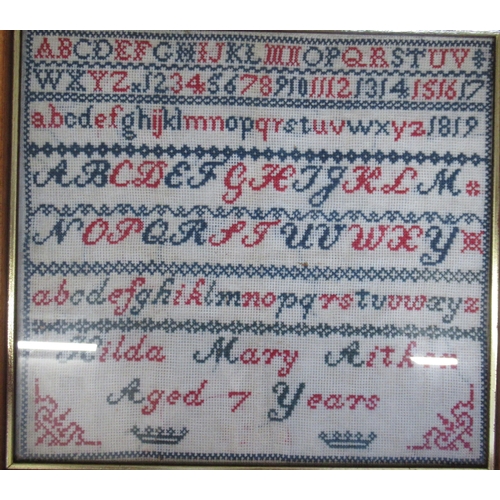 ABCDEFGHIJKLMNOPQRSTUV
WXYZ 1234567891011121314151617
abcdefghijklmnopqrstuvwxyz1819
ABCDEFGHIJKLM
NOPQRSTUVWXY
abcdefghiklmnopqrstuvwxyz
Hilda Mary Aitken
Aged 7 Years